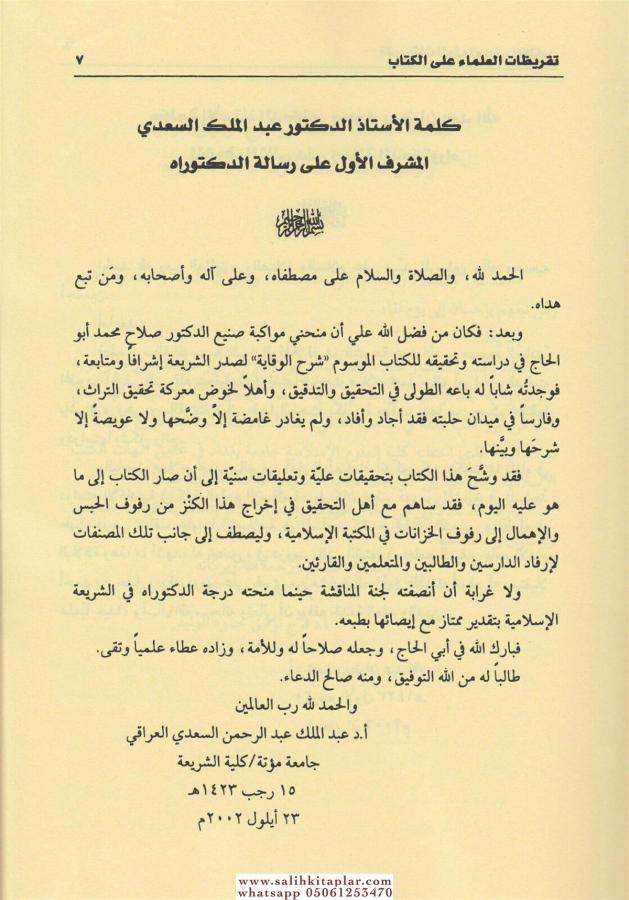 تقريظات العلماء على الكتاب ٧
كلمة الأستاذ الدكتور عبد الملك السعدي
المشرف الأول على رسالة الدكتوراه
بسم الله الرحمن الرحيم
الحمد لله، والصلاة والسلام على مصطفاه، وعلى آله وأصحابه، ومَن تبع
هداه.
وبعد: فكان من فضل الله علي أن منحني مواكبة صنيع الدكتور صلاح محمد أبو
الحاج في دراسته وتحقيقه للكتاب الموسوم «شرح الوقاية» لصدر الشريعة إشرافاً ومتابعة،
فوجدتُه شاباً له باعه الطولى في التحقيق والتدقيق، وأهلاً لخوض معركة تحقيق التراث،
وفارساً في ميدان حلبته فقد أجاد وأفاد، ولم يغادر غامضة إلاّ وضَّحها ولا عويصةً إلا
شرحَها وبيَّنها.
فقد وشَّحَ هذا الكتاب بتحقيقات عليّة وتعليقات سنيّة إلى أن صار الكتاب إلى ما
هو عليه اليوم، فقد ساهم مع أهل التحقيق في إخراج هذا الكَنْز من رفوف الحبس
والإهمال إلى رفوف الخزانات في المكتبة الإسلامية، وليصطف إلى جانب تلك المصنفات
لإرفاد الدارسين والطالبين والمتعلمين والقارئين.
ولا غرابة أن أنصفته لجنة المناقشة حينما منحته درجة الدكتوراه في الشريعة
الإسلامية بتقدير ممتاز مع إيصائها بطبعه.
فبارك الله في أبي الحاج، وجعله صلاحاً له وللأمة، وزاده عطاء علمياً وتقى.
طالباً له من الله التوفيق، ومنه صالح الدعاء.
والحمد لله رب العالمين
أ.د عبد الملك عبد الرحمن السعدي العراقي
جامعة مؤتة/كلية الشريعة
١٥ رجب ١٤٢٣هـ
٢٣ أيلول ٢٠٠٢م
www.salihkitaplar.com
whatsapp 05061253470